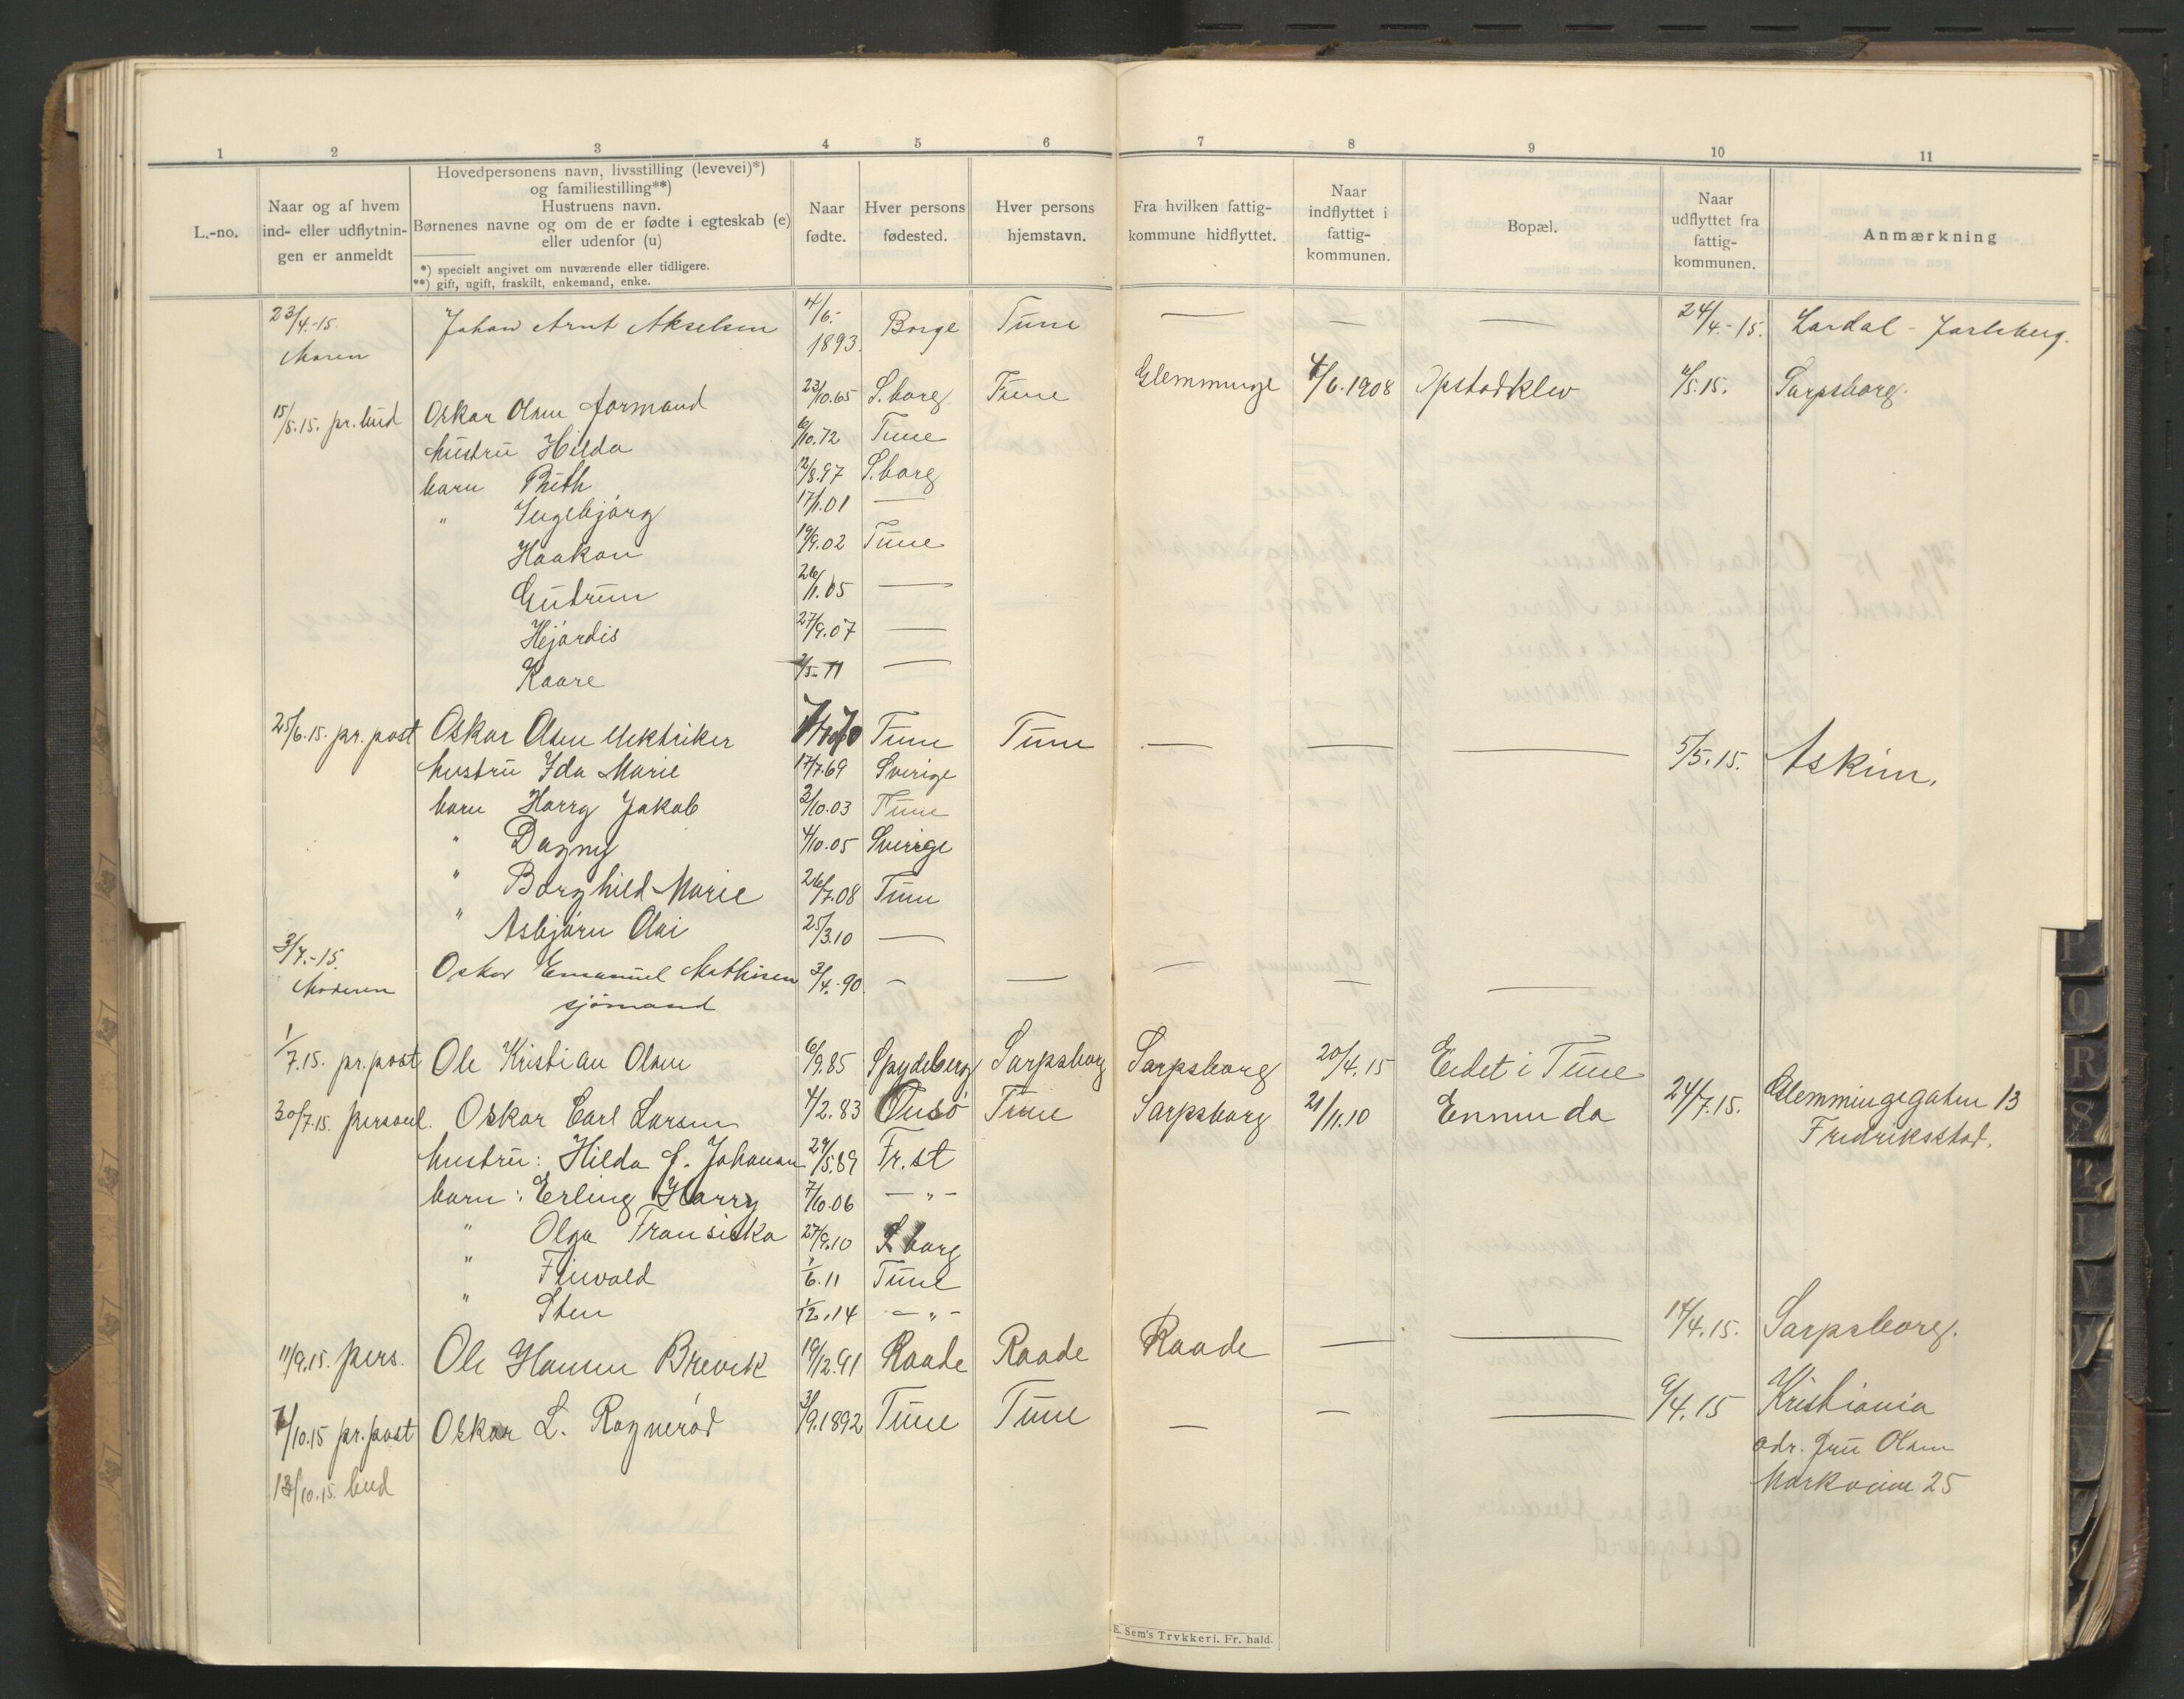 1 2 3 4 5 6 7 8 9 10 11
L.-no.
Naar og af hvem
ind- eller udflytnin-
gen er anmeldt
Hovedpersonens navn, livsstilling (levevei)*)
og familiestilling**)
Hustruens navn.
Børnenes navne og om de er fødte i egteskab (e)
eller udenfor (u)
*) specielt angivet om nuværende eller tidligere.
**) gift, ugift, fraskilt, enkemand, enke.
Naar
fødte.
Hver persons
fødested.
Hver persons
hjemstavn.
Fra hvilken fattig-
kommune hidflyttet.
Naar
indflyttet i
fattig-
kommunen.
Bopæl.
Naar
udflyttet fra
fattig-
kommunen.
Anmærkning
23/4.-15. Johan Arnt Akselsen 4/6.- 1893. Borge Tune — — — 24/4.-15. Lardal - Jarlsberg.
Moren
15/5.15. pr. bud Oskar Olsen formand 23/10.65 S.borg. Tune Glemminge 4/6.1908 Opstadklev /5.15. Sarpsborg.
hustru Hilda 6/10.72 Tune
barn Ruth 12/8.97 S.borg
" Ingebjørg 17/1.01 —
Haakon 19/9.02 Tune
Gudrun 26/11.05 —
Hejørdis 27/9.07 —
Kaare 2/5-11 —
25/6.15. pr. post Oskar Olsen elektriker Tune Tune — — — 5/5.15. Askim.
hustru Ida Marie 17/7.69 Sverige
barn Harry Jakob 3/10.03 Tune
" Dagny 4/10.05 Sverige
" Borghild Marie 26/7.08 Tune
" Asbjørn Olai 25/3.10 —
3/7.-15. Oskar Emanuel Mathisen 3/4.-90. — — — — —
Moderen sjømand
1/7.15. pr. post Ole Kristian Olsen 6/9.85 Spydeberg Sarpsborg Sarpsborg 20/4.15 Eidet i Tune
30/7.15. personl. Oskar Carl Larsen 4/2.83 Onsö Tune Sarpsborg 21/11.10 Ennunda 24/7.15. Glemmingegaten 13
Fredriksstad.
hustru: Hilda J. Johansen 29/5.89 Fr.st
barn: Erling Harry 7/10.06 — " —
" Olga Fransiska 27/9.10 S.borg
" Finvald 1/6.11 Tune
" Sten 1/2.14 — " —
11/9.15. pers. Ole Hansen Brevik 19/12.91 Raade Raade Raade — — 14/4.15. Sarpsborg.
/10.15 pr. post Oskar L. Rognerød 3/9.1892 Tune Tune — — — 9/4.15 Kristiania
adr. fru Olsen
Markveien 25
13/10.15. bud
E. Sem's Trykkeri, Fr. hald.
P
Q
R
S
T
V
W
X